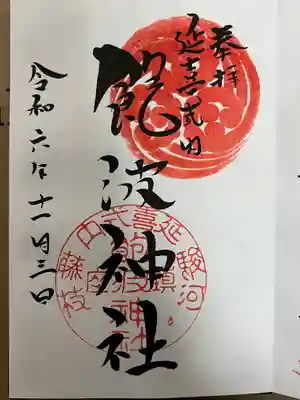 奉拝
延喜式内
飽波神社
令和六年十一月三日
延喜式内
駿河
藤枝
鎮座
飽波神社